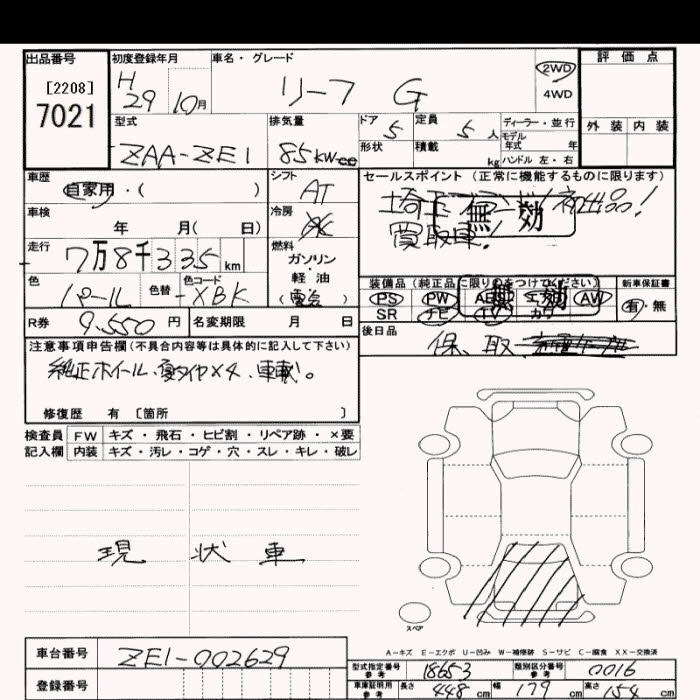 出品番号 初度登録年月 車名・グレード 評価点
[2208]
7021
H 29 10月 リーフ G 2WD
4WD
外装 内装
型式 排気量 ドア 定員 ディーラー・並行
ZAA-ZE1 85kw cc 5 5人 モデル年式 年
形状 積載 kg ハンドル 左・右
車歴 シフト セールスポイント(正常に機能するものに限ります)
自家用・( ) AT 埼玉 初出品!
無効
買取車!
車検 冷房
年 月( 日) AC
走行 燃料
7万8千335km ガソリン
・軽油
(電気)
色 色替 色コード 装備品(純正品に限り○をつけてください) 新車保証書
パール -XBK PS PW AB エアB AW 有・無
無効
SR ナビ TV カワ
R券 9,550円 名変期限 月 日 後日品
保、取
注意事項申告欄(不具合内容等は具体的に記入して下さい)
純正ホイール、夏タイヤ×4、車載。
修復歴 有 〔箇所 〕
検査員 FW キズ・飛石・ヒビ割・リペア跡・×要
記入欄 内装 キズ・汚レ・コゲ・穴・スレ・キレ・破レ
現状車
スペア
A-キズ E-エクボ U-凹み W-補修跡 S-サビ C-腐食 XX-交換済
車台番号 ZE1-002629
登録番号
型式指定番号 参考 18653 類別区分番号 参考 0016
車庫証明用 参考 長さ 448cm 幅 179cm 高さ 154cm